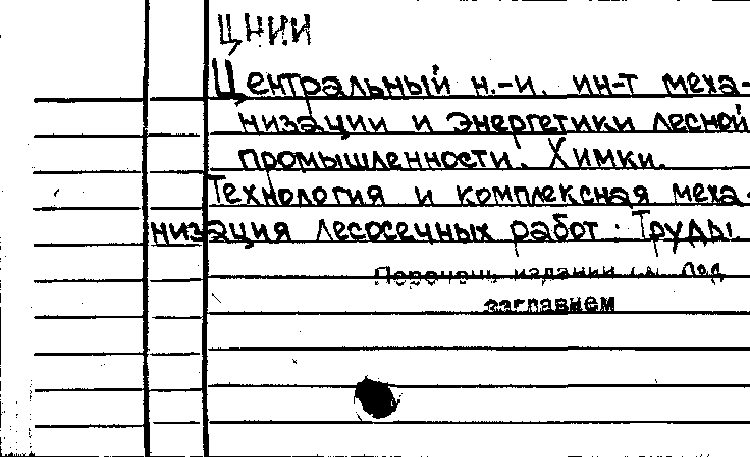 ЦНИИ
Центральный н.-и. ин-т меха-
низации и энергетики лесной
промышленности. Химки.
Технология и комплексная меха-
низация лесосечных работ. Труды.
Перечень издании см. под
заглавием